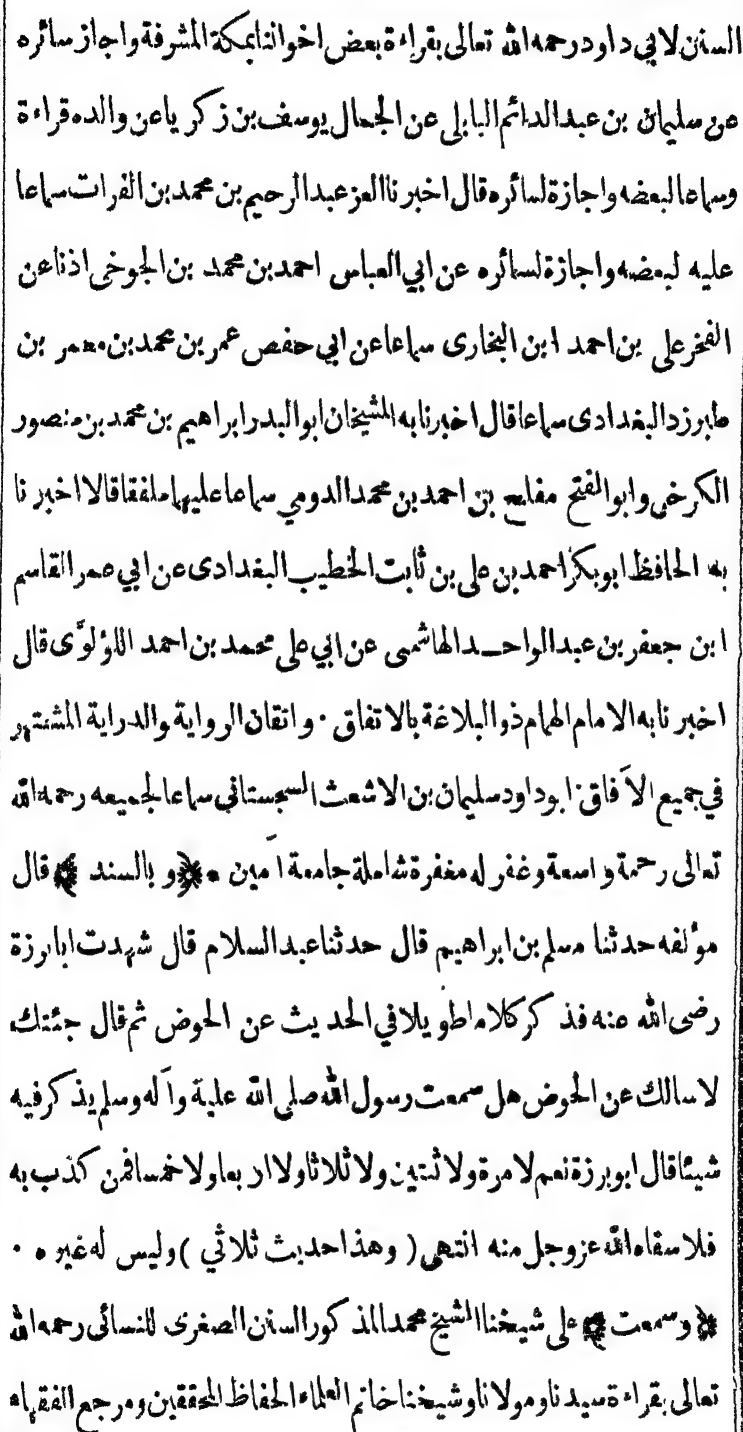 السنن لابي داود رحمه الله تعالى بقراءة بعض اخواننا بمكة المشرفة واجاز سائره
عن سليمان بن عبد الدائم البابلى عن الجمال يوسف بن زكريا عن والده قراءة
وسماعا لبعضه واجازة لسائره قال اخبرنا العز عبد الرحيم بن محمد بن الفرات سماعا
عليه لبعضه واجازة لسائره عن ابي العباس احمد بن محمد بن الجوخى اذنا عن
الفخر على بن احمد ابن البخارى سماعا عن ابي حفص عمر بن محمد بن معمر بن
طبرزد البغدادى سماعا قال اخبرنا به الشيخان ابو البدر ابراهيم بن محمد بن منصور
الكرخى وابو الفتح مفلح بن احمد بن محمد الدومي سماعا عليهما ملفقا قالا اخبرنا
به الحافظ ابو بكر احمد بن على بن ثابت الخطيب البغدادى عن ابي عمر القاسم
ابن جعفر بن عبد الواحد الهاشمى عن ابي على محمد بن احمد اللؤلؤى قال
اخبرنا به الامام الهمام ذو البلاغة بالاتفاق . واتقان الرواية والدراية المشتهر
في جميع الآفاق ابو داود سليمان بن الاشعث السجستانى سماعا لجميعه رحمه الله
تعالى رحمة واسعة وغفر له مغفرة شاملة جامعة آمين . ﴿ وبالسند ﴾ قال
مؤلفه حدثنا مسلم بن ابراهيم قال حدثنا عبد السلام قال شهدت ابا برزة
رضى الله عنه فذكر كلاما طويلا في الحديث عن الحوض ثم قال جئتك
لاسالك عن الحوض هل سمعت رسول الله صلى الله علية وآله وسلم يذكر فيه
شيئا قال ابو برزة نعم لا مرة ولا ثنتين ولا ثلاثا ولا اربعا ولا خمسا فمن كذب به
فلا سقاه الله عز وجل منه انتهى ( وهذا حديث ثلاثي ) وليس له غيره .
﴿ وسمعت ﴾ على شيخنا الشيخ محمد المذكور السنن الصغرى للنسائى رحمه الله
تعالى بقراءة سيدنا ومولانا وشيخنا خاتم العلماء الحفاظ المحققين ومرجع الفقهاء